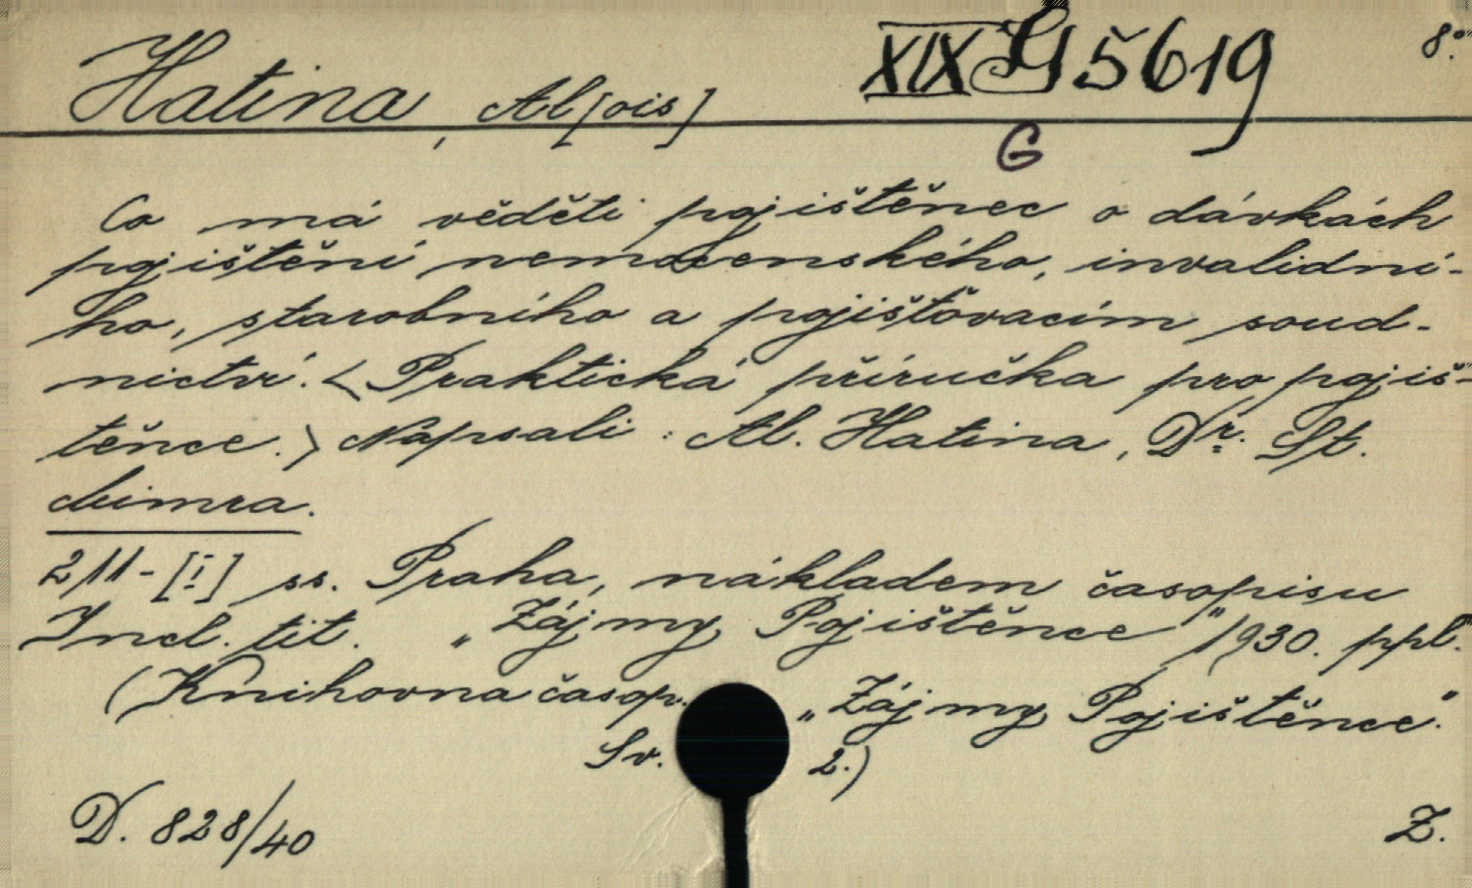 Hatina, Al[ois] XIX G 5619 8°.
G
Co má věděti pojištěnec o dávkách
pojištění nemocenského, invalidní-
ho, starobního a pojišťovacím soud-
nictví. <Praktická příručka pro pojiš-
těnce.> Napsali: Al. Hatina, Dr. St.
Mimra.
211-[I] ss. Praha, nákladem časopisu
Incl. tit. „Zájmy Pojištěnce" 1930. ppl.
(Knihovna časop. „Zájmy Pojištěnce."
Sv. 2.)
D. 828/40 Z.